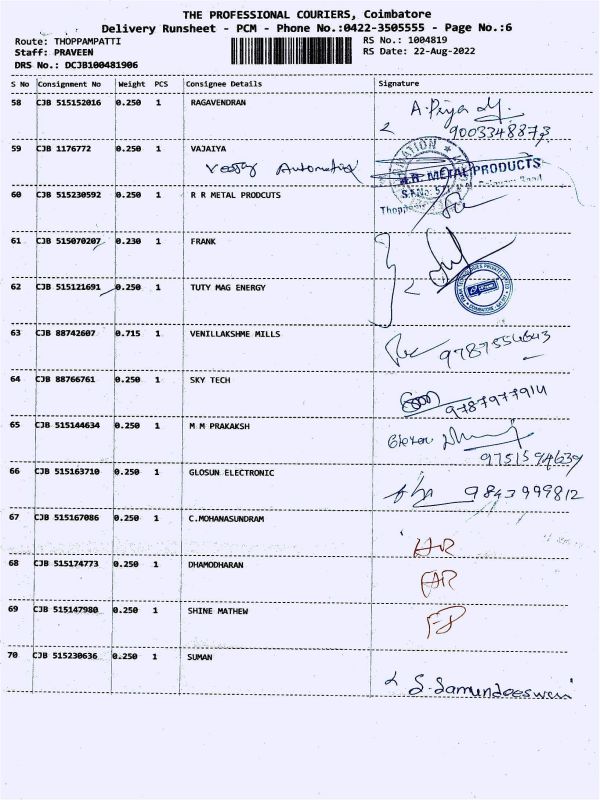 THE PROFESSIONAL COURIERS, Coimbatore
Delivery Runsheet - PCM - Phone No.:0422-3505555 - Page No.:6
Route: THOPPAMPATTI RS No.: 1004819
Staff: PRAVEEN RS Date: 22-Aug-2022
DRS No.: DCJB100481906
S No Consignment No Weight PCS Consignee Details Signature
58 CJB 515152016 0.250 1 RAGAVENDRAN
9003348873
59 CJB 1176772 0.250 1 VAJAIYA
METAL PRODUCTS
60 CJB 515230592 0.250 1 R R METAL PRODCUTS
61 CJB 515070207 0.230 1 FRANK
62 CJB 515121691 0.250 1 TUTY MAG ENERGY
63 CJB 88742607 0.715 1 VENILLAKSHME MILLS
9787554643
64 CJB 88766761 0.250 1 SKY TECH
9787977914
65 CJB 515144634 0.250 1 M M PRAKAKSH
9751594639
66 CJB 515163710 0.250 1 GLOSUN ELECTRONIC
9843999812
67 CJB 515167086 0.250 1 C.MOHANASUNDRAM
68 CJB 515174773 0.250 1 DHAMODHARAN
69 CJB 515147980 0.250 1 SHINE MATHEW
70 CJB 515230636 0.250 1 SUMAN